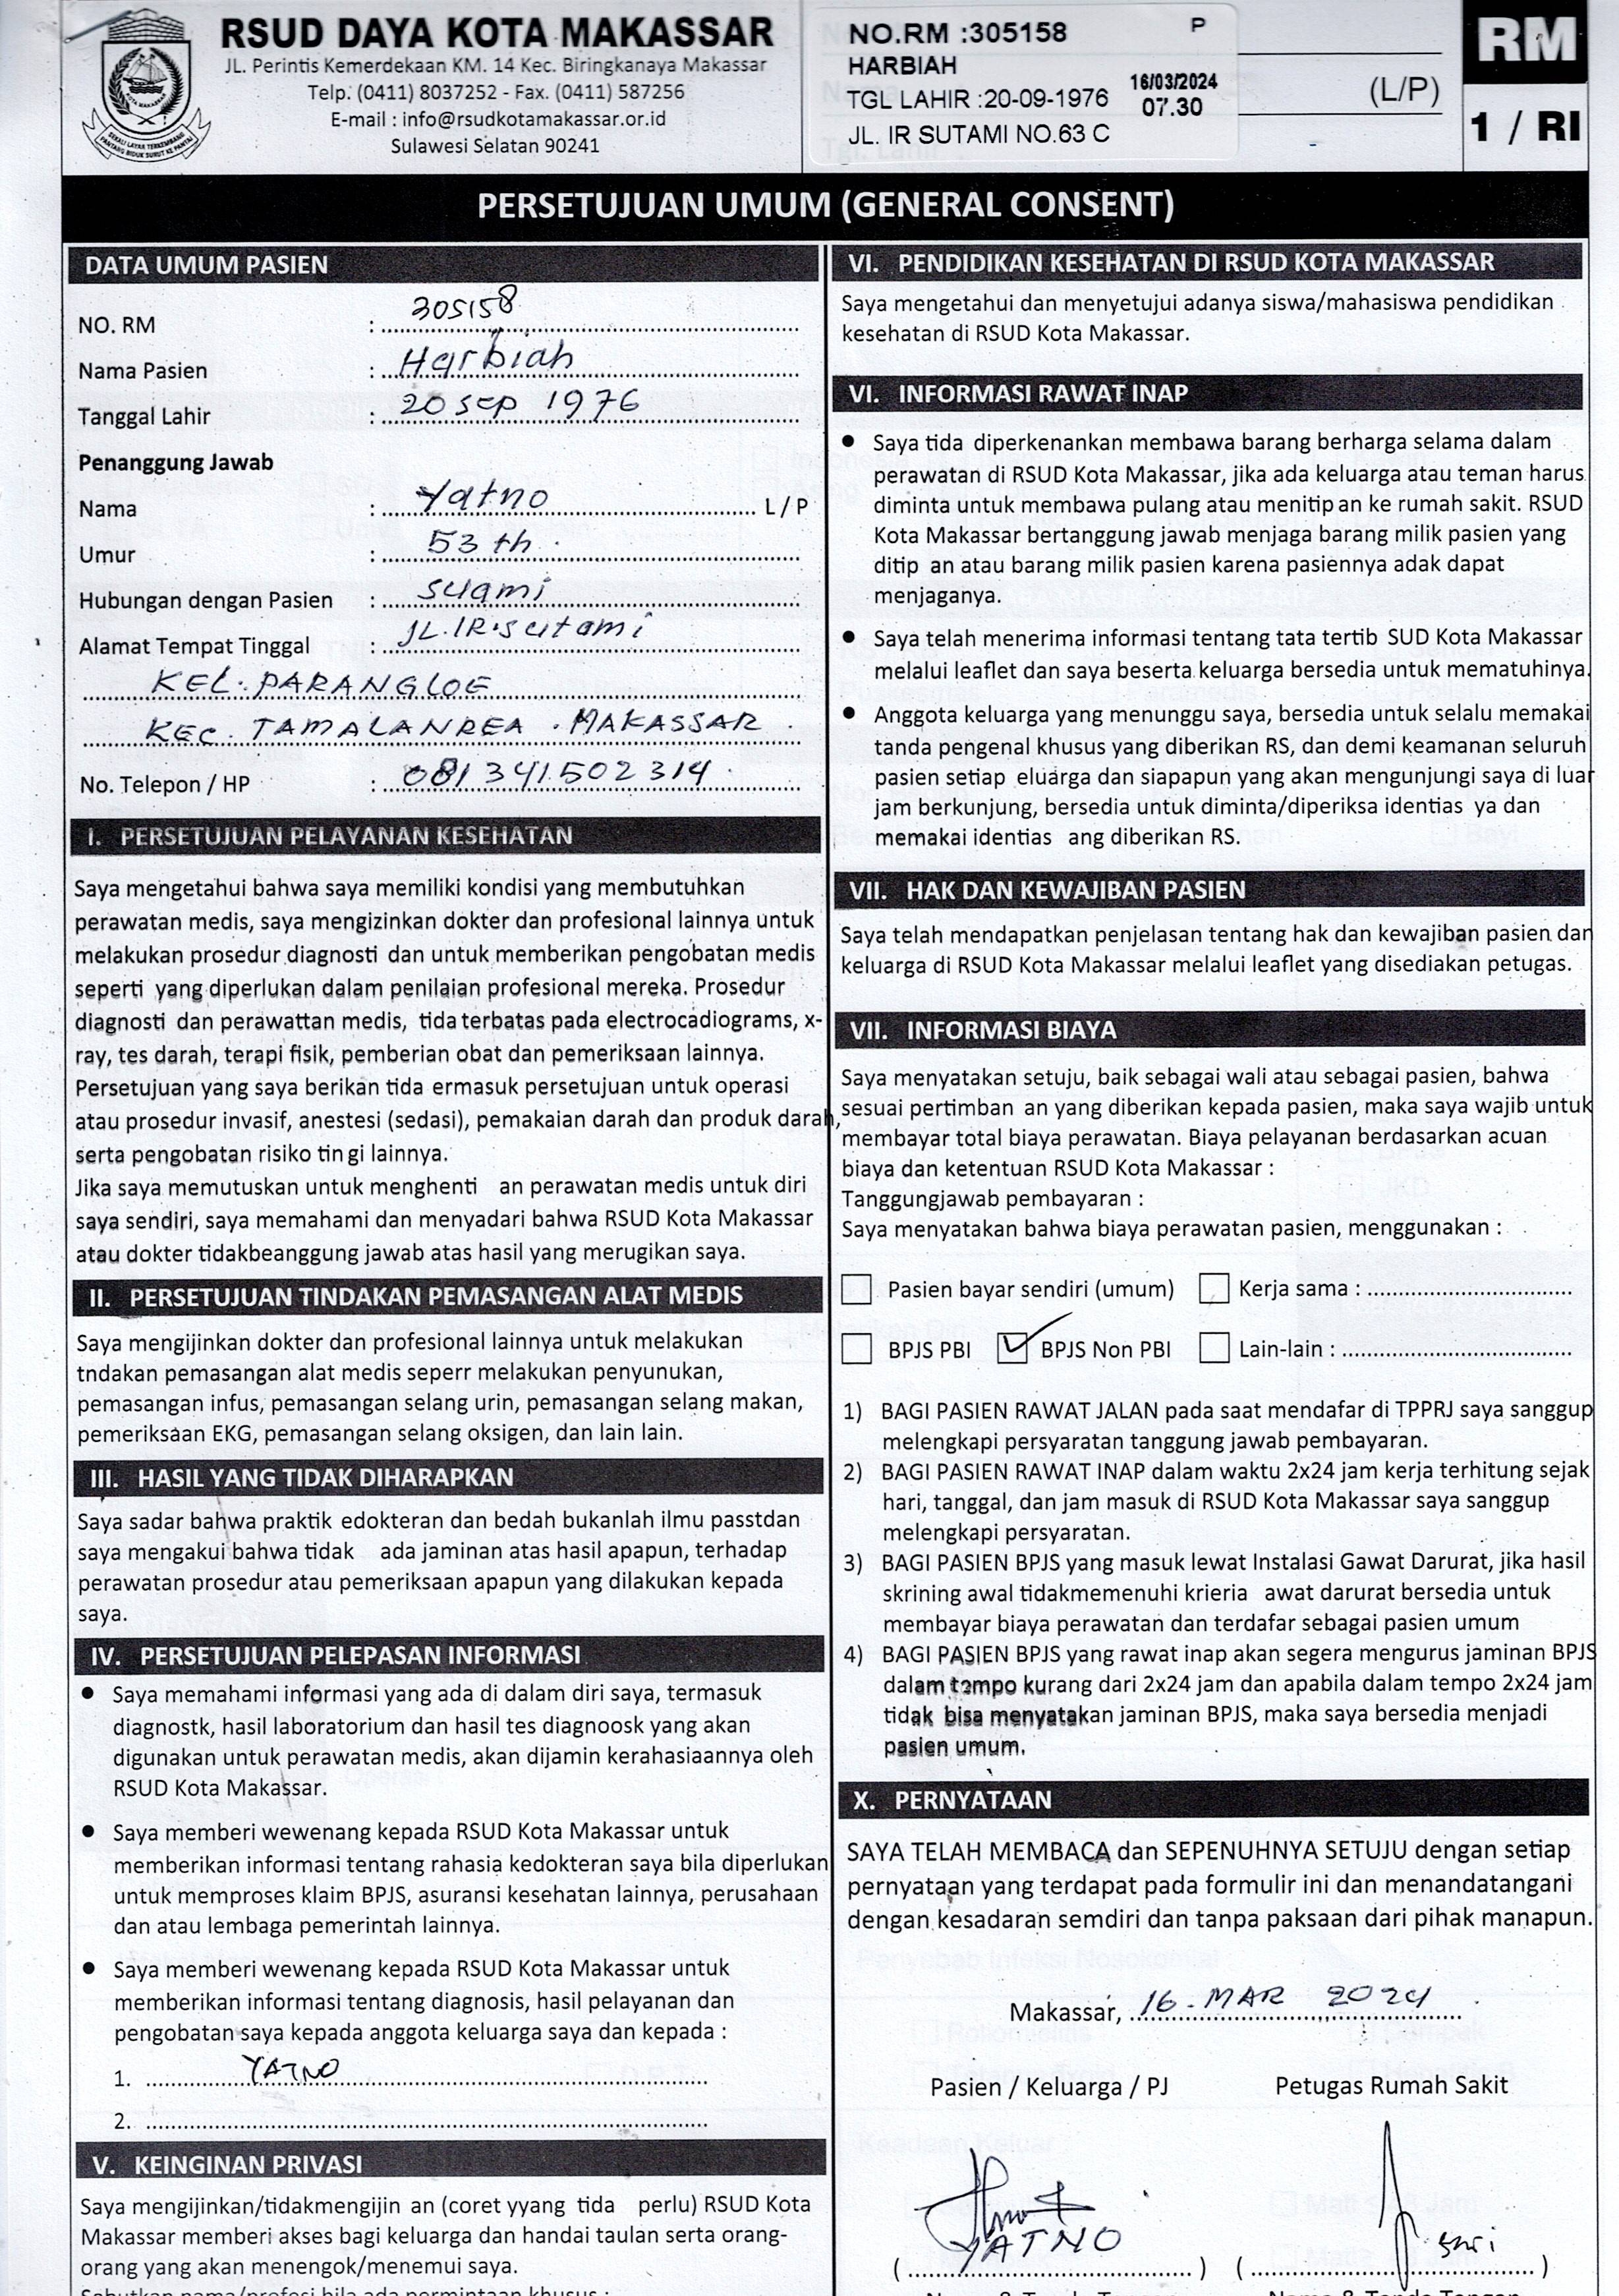 RSUD DAYA KOTA MAKASSAR
JL. Perintis Kemerdekaan KM. 14 Kec. Biringkanaya Makassar
Telp. (0411) 8037252 - Fax. (0411) 587256
E-mail : info@rsudkotamakassar.or.id
Sulawesi Selatan 90241
NO.RM :305158 P
HARBIAH
TGL LAHIR :20-09-1976 16/03/2024 07.30
JL. IR SUTAMI NO.63 C
(L/P)
RM
1 / RI
PERSETUJUAN UMUM (GENERAL CONSENT)
DATA UMUM PASIEN
NO. RM : 305158
Nama Pasien : Harbiah
Tanggal Lahir : 20 sep 1976
Penanggung Jawab
Nama : Yatno L / P
Umur : 53 th
Hubungan dengan Pasien : suami
Alamat Tempat Tinggal : JL. IR. sutami
KEL. PARANGLOE
KEC. TAMALANREA . MAKASSAR
No. Telepon / HP : 081341502314
I. PERSETUJUAN PELAYANAN KESEHATAN
Saya mengetahui bahwa saya memiliki kondisi yang membutuhkan
perawatan medis, saya mengizinkan dokter dan profesional lainnya untuk
melakukan prosedur diagnosti dan untuk memberikan pengobatan medis
seperti yang diperlukan dalam penilaian profesional mereka. Prosedur
diagnosti dan perawattan medis, tida terbatas pada electrocadiograms, x-
ray, tes darah, terapi fisik, pemberian obat dan pemeriksaan lainnya.
Persetujuan yang saya berikan tida ermasuk persetujuan untuk operasi
atau prosedur invasif, anestesi (sedasi), pemakaian darah dan produk darah,
serta pengobatan risiko tin gi lainnya.
Jika saya memutuskan untuk menghenti an perawatan medis untuk diri
saya sendiri, saya memahami dan menyadari bahwa RSUD Kota Makassar
atau dokter tidakbeanggung jawab atas hasil yang merugikan saya.
II. PERSETUJUAN TINDAKAN PEMASANGAN ALAT MEDIS
Saya mengijinkan dokter dan profesional lainnya untuk melakukan
tndakan pemasangan alat medis seperr melakukan penyunukan,
pemasangan infus, pemasangan selang urin, pemasangan selang makan,
pemeriksaan EKG, pemasangan selang oksigen, dan lain lain.
III. HASIL YANG TIDAK DIHARAPKAN
Saya sadar bahwa praktik edokteran dan bedah bukanlah ilmu passtdan
saya mengakui bahwa tidak ada jaminan atas hasil apapun, terhadap
perawatan prosedur atau pemeriksaan apapun yang dilakukan kepada
saya.
IV. PERSETUJUAN PELEPASAN INFORMASI
● Saya memahami informasi yang ada di dalam diri saya, termasuk
diagnostk, hasil laboratorium dan hasil tes diagnoosk yang akan
digunakan untuk perawatan medis, akan dijamin kerahasiaannya oleh
RSUD Kota Makassar.
● Saya memberi wewenang kepada RSUD Kota Makassar untuk
memberikan informasi tentang rahasia kedokteran saya bila diperlukan
untuk memproses klaim BPJS, asuransi kesehatan lainnya, perusahaan
dan atau lembaga pemerintah lainnya.
● Saya memberi wewenang kepada RSUD Kota Makassar untuk
memberikan informasi tentang diagnosis, hasil pelayanan dan
pengobatan saya kepada anggota keluarga saya dan kepada :
1. YATNO
2.
V. KEINGINAN PRIVASI
Saya mengijinkan/tidakmengijin an (coret yyang tida perlu) RSUD Kota
Makassar memberi akses bagi keluarga dan handai taulan serta orang-
orang yang akan menengok/menemui saya.
VI. PENDIDIKAN KESEHATAN DI RSUD KOTA MAKASSAR
Saya mengetahui dan menyetujui adanya siswa/mahasiswa pendidikan
kesehatan di RSUD Kota Makassar.
VI. INFORMASI RAWAT INAP
● Saya tida diperkenankan membawa barang berharga selama dalam
perawatan di RSUD Kota Makassar, jika ada keluarga atau teman harus
diminta untuk membawa pulang atau menitip an ke rumah sakit. RSUD
Kota Makassar bertanggung jawab menjaga barang milik pasien yang
ditip an atau barang milik pasien karena pasiennya adak dapat
menjaganya.
● Saya telah menerima informasi tentang tata tertib SUD Kota Makassar
melalui leaflet dan saya beserta keluarga bersedia untuk mematuhinya.
● Anggota keluarga yang menunggu saya, bersedia untuk selalu memakai
tanda pengenal khusus yang diberikan RS, dan demi keamanan seluruh
pasien setiap eluarga dan siapapun yang akan mengunjungi saya di luar
jam berkunjung, bersedia untuk diminta/diperiksa identias ya dan
memakai identias ang diberikan RS.
VII. HAK DAN KEWAJIBAN PASIEN
Saya telah mendapatkan penjelasan tentang hak dan kewajiban pasien dan
keluarga di RSUD Kota Makassar melalui leaflet yang disediakan petugas.
VII. INFORMASI BIAYA
Saya menyatakan setuju, baik sebagai wali atau sebagai pasien, bahwa
sesuai pertimban an yang diberikan kepada pasien, maka saya wajib untuk
membayar total biaya perawatan. Biaya pelayanan berdasarkan acuan
biaya dan ketentuan RSUD Kota Makassar :
Tanggungjawab pembayaran :
Saya menyatakan bahwa biaya perawatan pasien, menggunakan :
Pasien bayar sendiri (umum) Kerja sama :
BPJS PBI ✓ BPJS Non PBI Lain-lain :
1) BAGI PASIEN RAWAT JALAN pada saat mendafar di TPPRJ saya sanggup
melengkapi persyaratan tanggung jawab pembayaran.
2) BAGI PASIEN RAWAT INAP dalam waktu 2x24 jam kerja terhitung sejak
hari, tanggal, dan jam masuk di RSUD Kota Makassar saya sanggup
melengkapi persyaratan.
3) BAGI PASIEN BPJS yang masuk lewat Instalasi Gawat Darurat, jika hasil
skrining awal tidakmemenuhi krieria awat darurat bersedia untuk
membayar biaya perawatan dan terdafar sebagai pasien umum
4) BAGI PASIEN BPJS yang rawat inap akan segera mengurus jaminan BPJS
dalam tempo kurang dari 2x24 jam dan apabila dalam tempo 2x24 jam
tidak bisa menyatakan jaminan BPJS, maka saya bersedia menjadi
pasien umum.
X. PERNYATAAN
SAYA TELAH MEMBACA dan SEPENUHNYA SETUJU dengan setiap
pernyataan yang terdapat pada formulir ini dan menandatangani
dengan kesadaran semdiri dan tanpa paksaan dari pihak manapun.
Makassar, 16 . MAR 2024
Pasien / Keluarga / PJ Petugas Rumah Sakit
( YATNO ) ( )